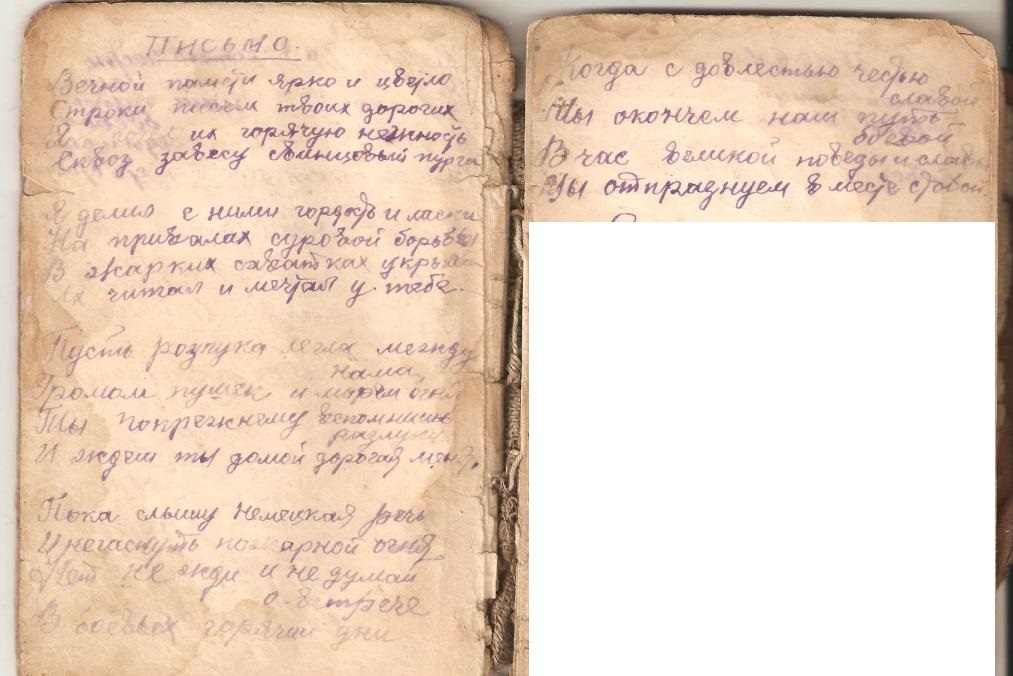 ПИСЬМО.
Вечной памяти ярко и цвело
Строки писем твоих дорогих
их горячую нежность
Сквоз завесу свинцовый пурга
Я делил с ними гордость и ласки
На привалах суровой борьбы
В жарких схватках
Их читал и мечтал у тебе.
Пусть розлука легла между
нами,
Громом пушек и морем огня
Ты попрежнему вспомнишь
разлуку
И ждеш ты домой дорогая меня,
Пока слышу немецкая речь
И негаснуть пожарной огня
Нет не жди и не думай
о встрече
В боевых горячии дни
Когда с довлестью честью
славой
Мы окончем наш путь
боевой
В час великой победы и славы
Мы отпразнуем вместе стобой